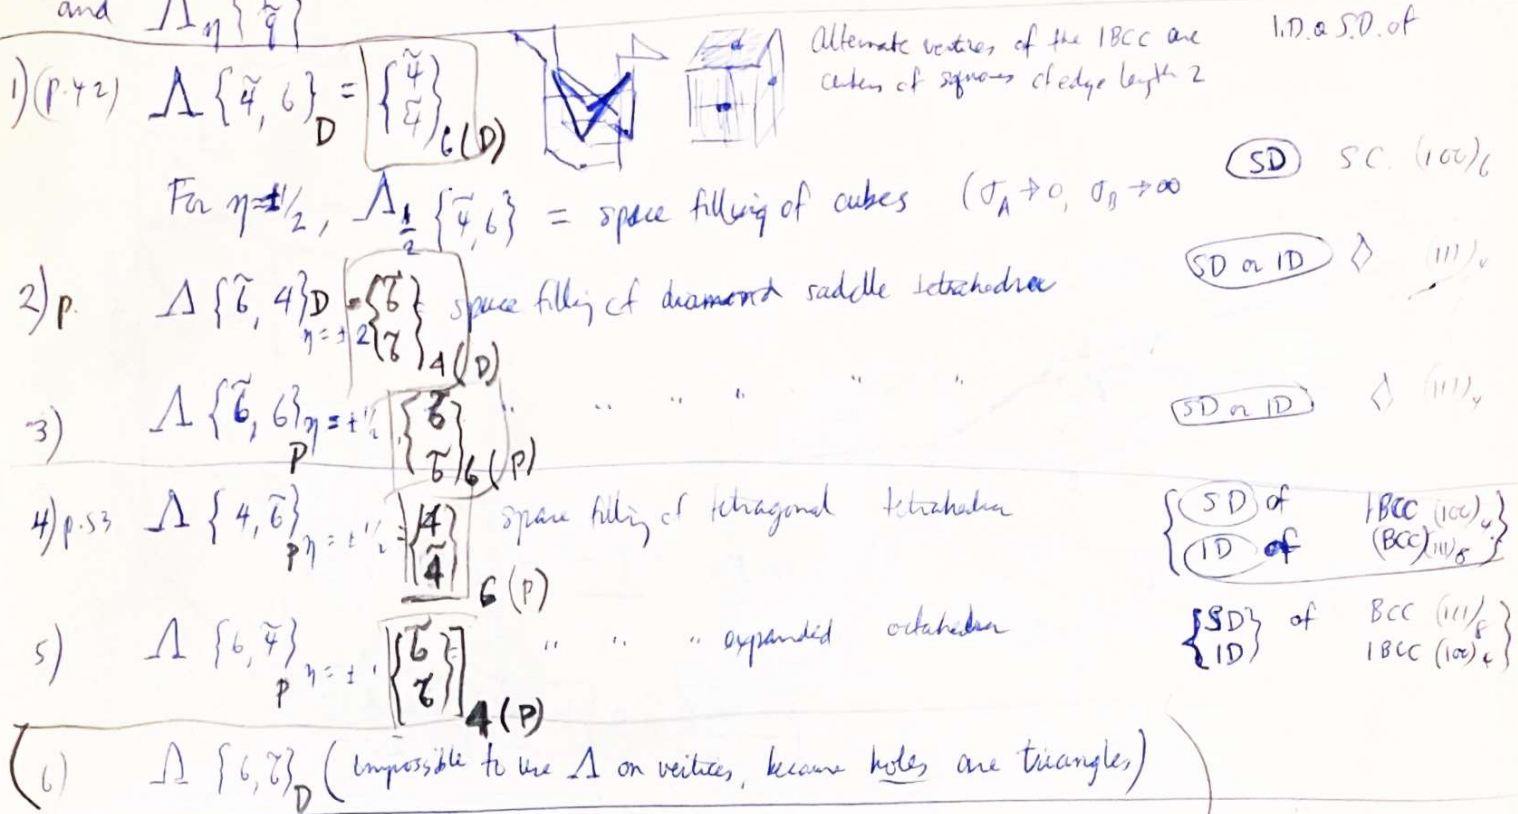 and Λη{q̃}
1) (p.42) Λ{4̃, 6}D = {4̃ 4̃}6(D)
Alternate vertices of the IBCC are
centers of squares of edge length 2
I.D. or S.D. of
SD S.C. (100)6
For η=±1/2, Λ1/2{4̃,6} = space filling of cubes (σA→0, σB→∞
2) p. Λ{6̃, 4}D η=±2 {6̃ 6̃}4(D) space filling of diamond saddle tetrahedra
SD or ID ◊ (111)4
3) Λ{6̃, 6}P η=±1/2 {6̃ 6̃}6(P) " " " " " "
SD or ID ◊ (111)4
4) p.53 Λ{4, 6̃}P η=±1/2 = {4̃ 4̃}6(P) space filling of tetragonal tetrahedra
{SD of IBCC (100)4
ID of (BCC)(111)8}
5) Λ{6, 4̃}P η=± {6̃ 6̃}4(P) " " " expanded octahedra
{SD ID} of BCC (111)8
IBCC (100)4
(6) Λ{6, 6̃}D (impossible to use Λ on vertices, because holes are triangles)